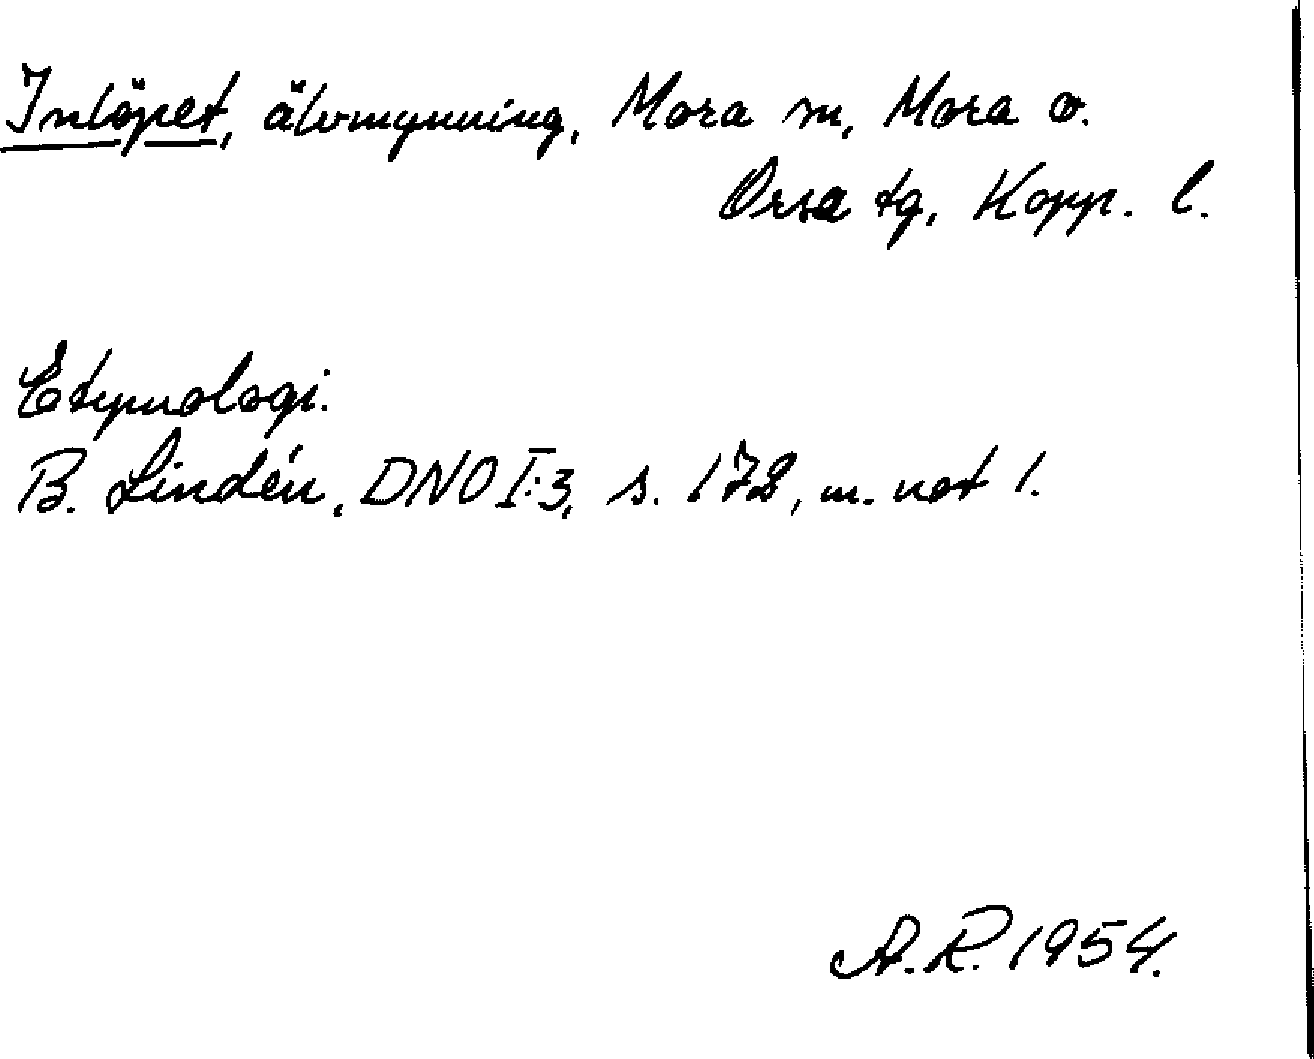 Inlöpet, älvmynning, Mora sn, Mora o.
Orsa tg, Kopp. l.
Etymologi.
B. Lindén, DNO I:3, s. 172, m. not 1.
A. R. 1954.